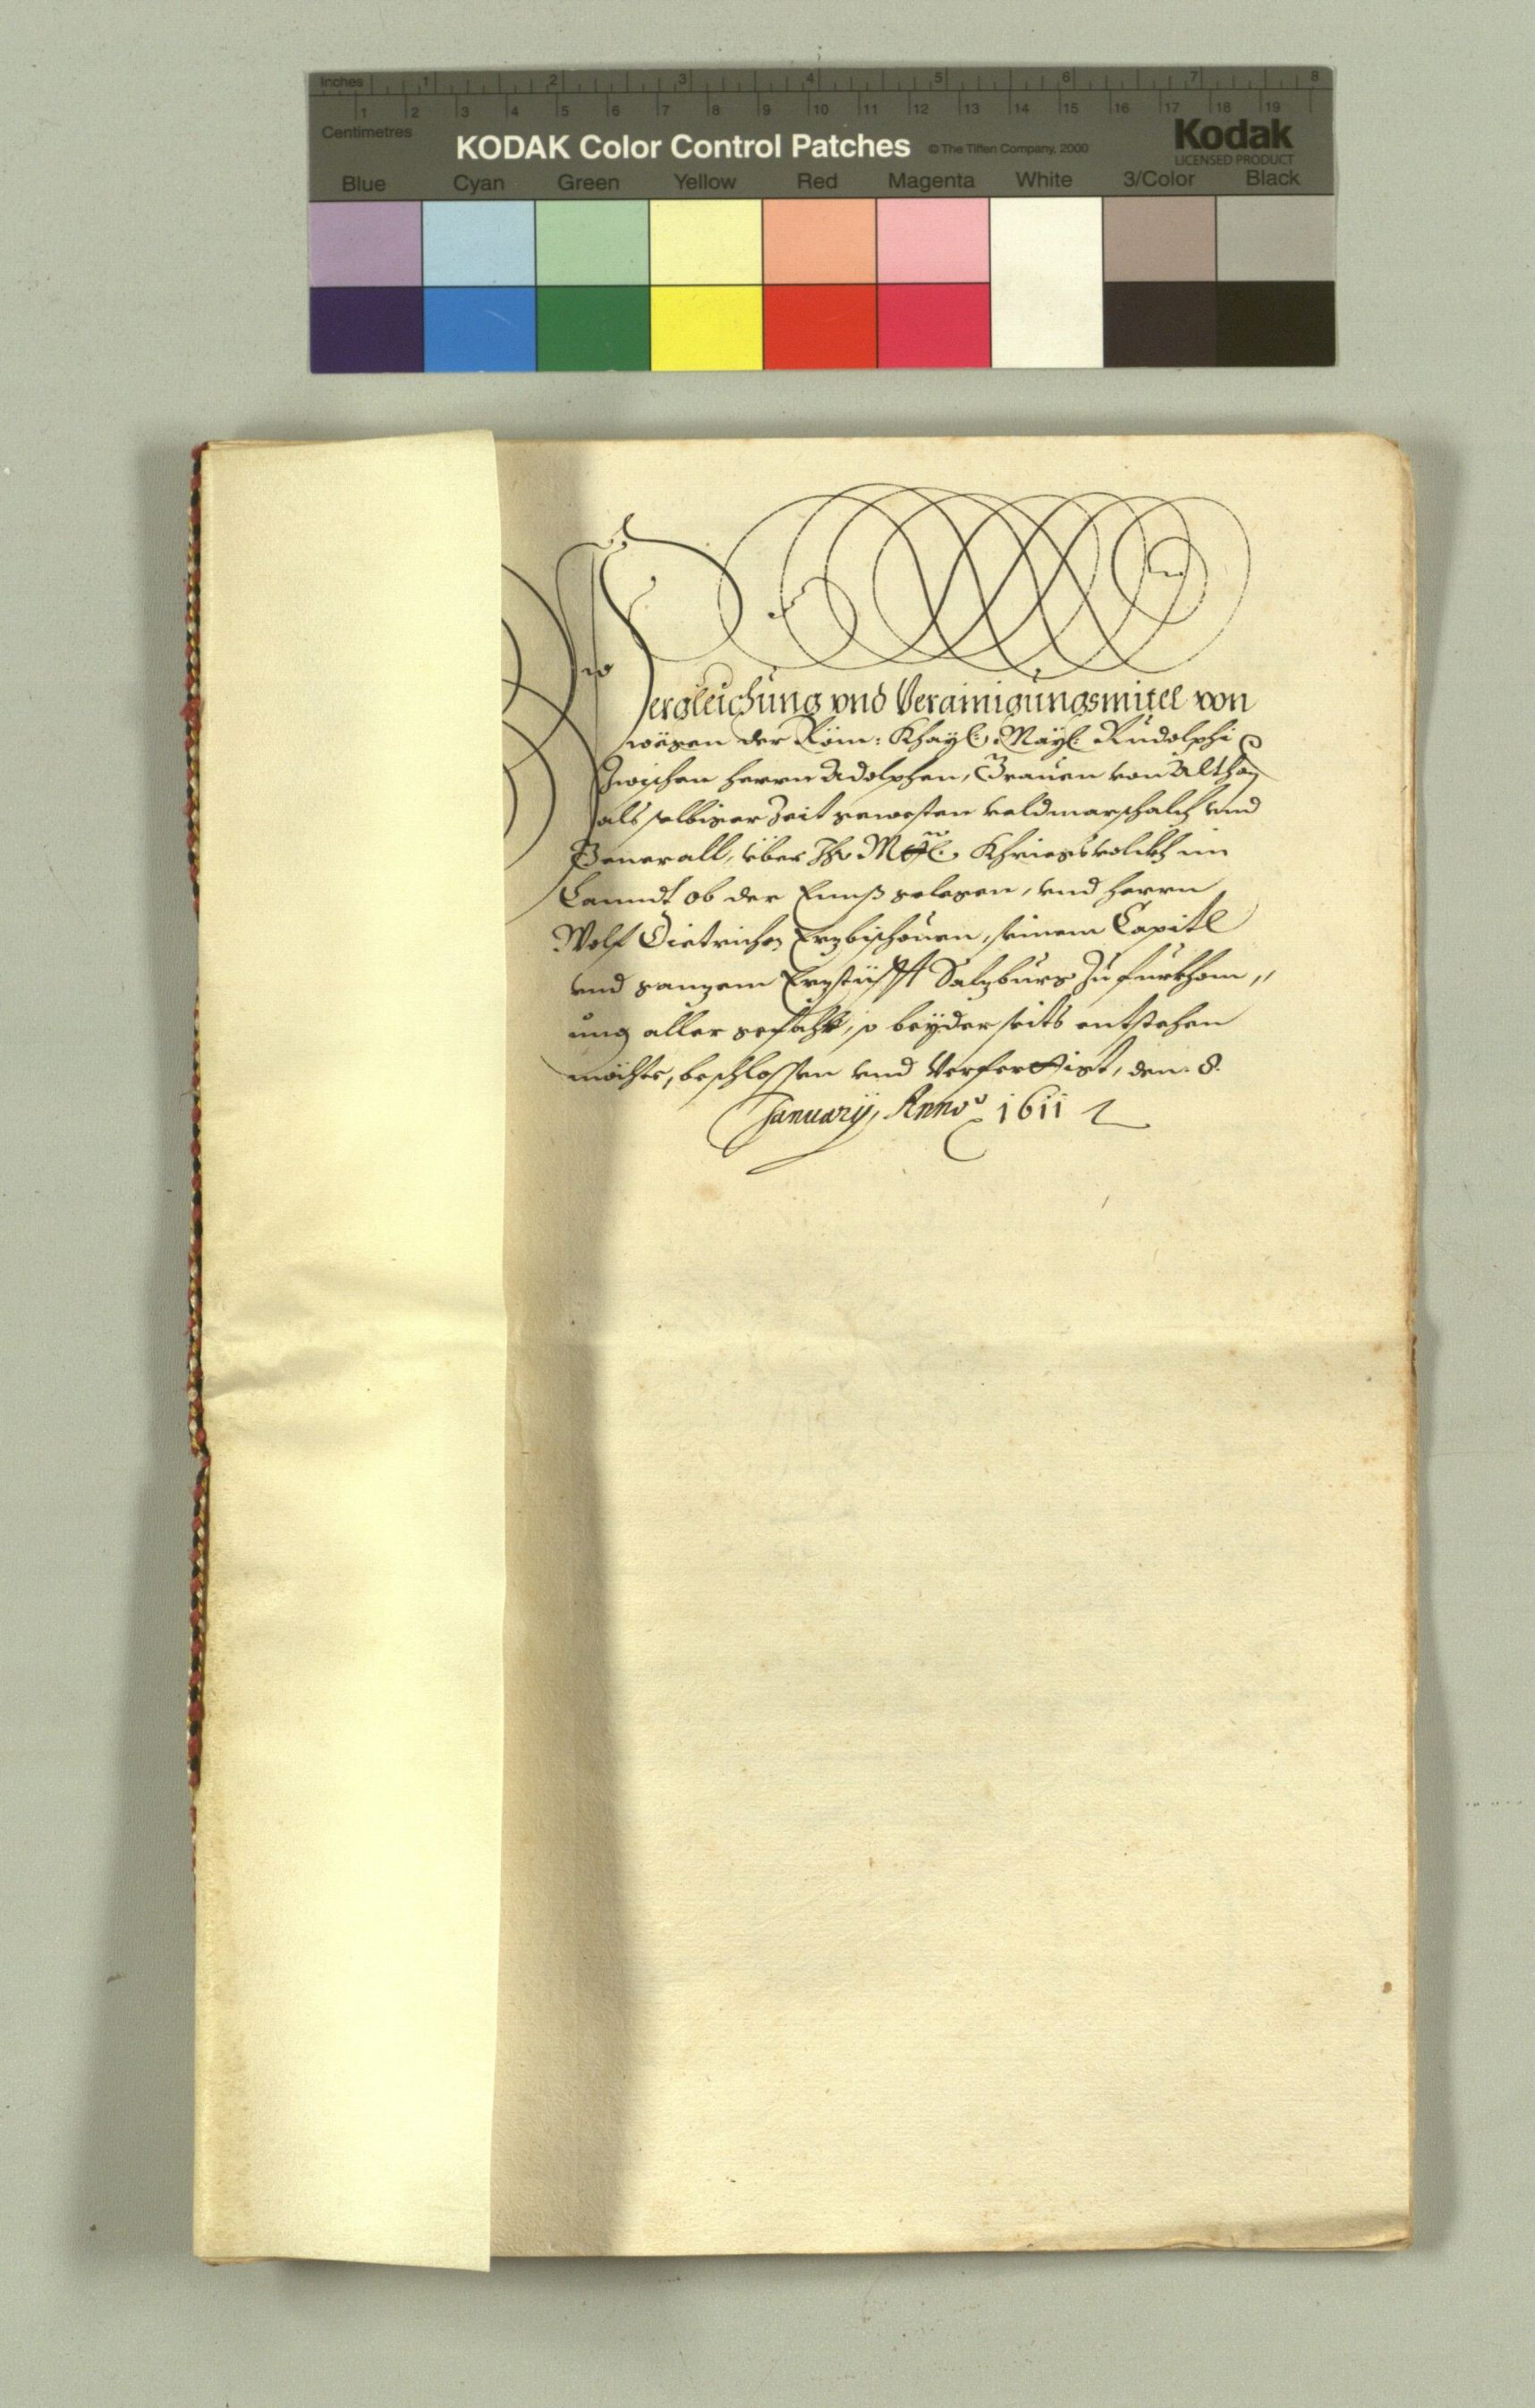 Inches 1 2 3 4 5 6 7 8
1 2 3 4 5 6 7 8 9 10 11 12 13 14 15 16 17 18 19
Centimetres
KODAK Color Control Patches © The Tiffen Company, 2000 Kodak
LICENSED PRODUCT
Blue Cyan Green Yellow Red Magenta White 3/Color Black
Vergleichung vnd Verainigungsmitel von
wegen der Röm: Khayl: Mäyl: Rudolphi
Zwischen herrn Adolphen, Grauen von Althan
als selbiger Zeit gewesten veldmarschalch vnd
Generall, über Ihr Mäyl: Khriegsvolckh im
Lanndt ob der Ennß gelegen, vnd herrn
Wolf Dietrichen Erzbischouen, seinem Capitl
vnd ganzem Erzstüfft Salzburg Zu fürkhom„
ung aller gefahr, so beyderseits entstehen
möchte, beschlossen vnd Verfertigt, den. 8.
January, Anno 1611